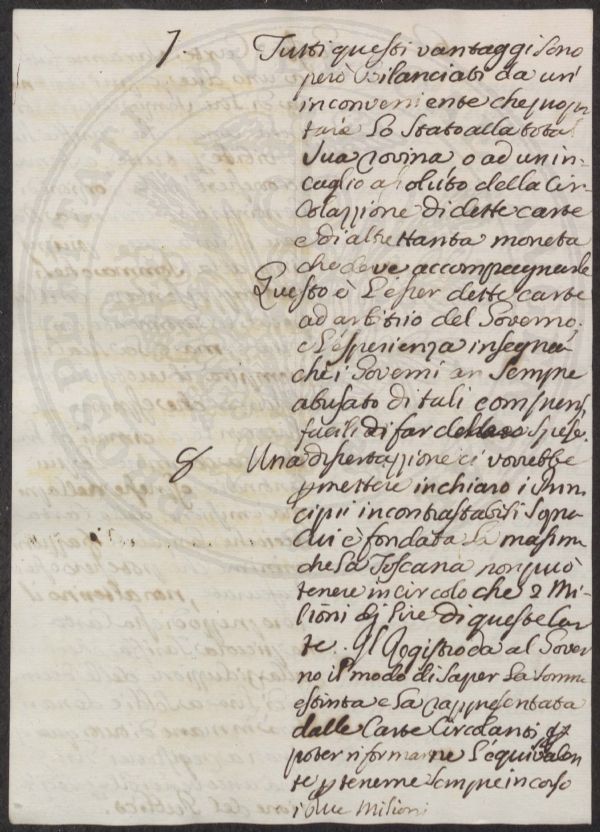 7. Tutti questi vantaggi sono
però bilanciati da un'
inconveniente che può por
tare lo Stato alla total
sua rovina o ad un in
caglio assoluto della Cir
colazzione di dette carte
e di altrettanta moneta
che deve accompagnarle
Questo è l'esser dette carte
ad arbitrio del Governo.
e l'esperienza insegna
che i Governi an sempre
abusato di tali compensi
facili di far spese.
8 Una dissertazzione ci vorrebbe
p mettere in chiaro i Prin
cipii incontrastabili sopra
dei è fondata la massima
che la Toscana non può
tenere in circolo che 2 Mi-
lioni di lire di queste Car
te. Il Registro da al Gover
no il modo di saper la somma
estinta e la rappresentata
dalle Carte Circolanti p
poter riformarne l'equivalen
te p tenerne sempre in corso
i due Milioni